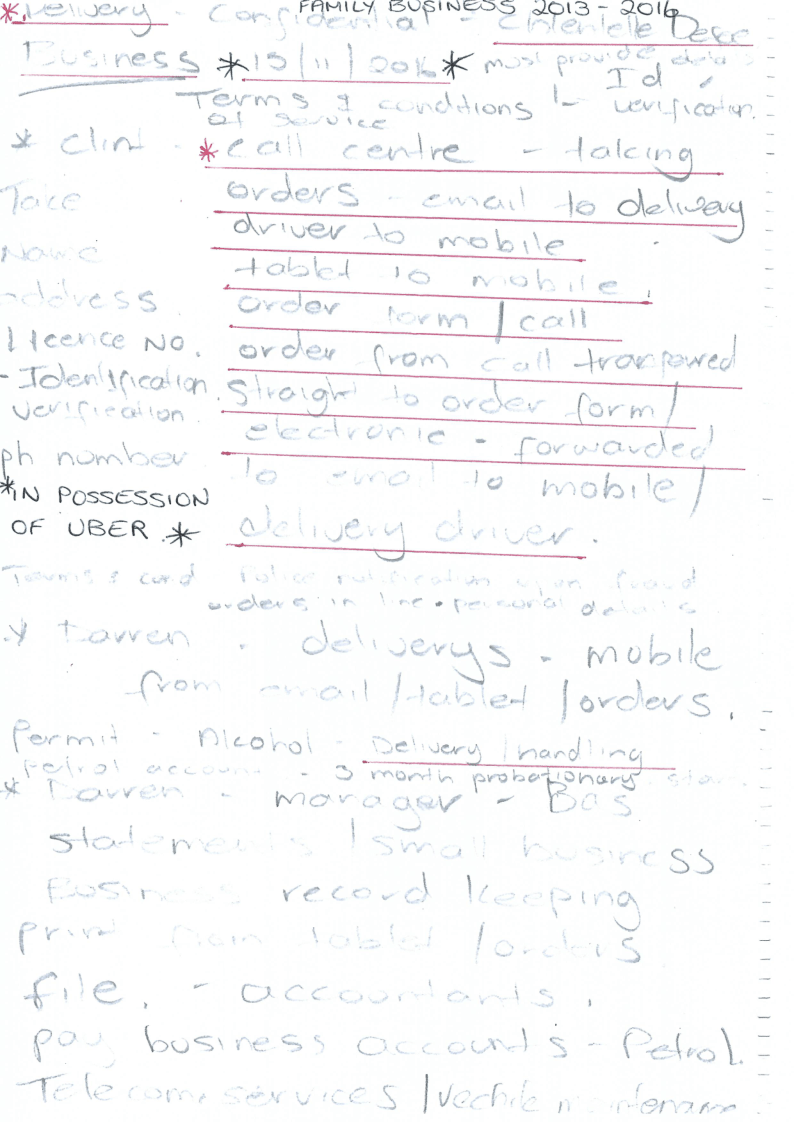 FAMILY BUSINESS 2013 - 2016
*Delivery - Confidential - Clientelle Desc
Business *15/11/2016* must provide details
Id
Terms & conditions - verification
of service
* Clint - *call centre - taking
Take orders - email to delivery
driver to mobile
Name tablet to mobile
address order form / call
licence NO. order from call
- Identification straight to order form /
verification electronic - forwarded
ph number to email to mobile /
*IN POSSESSION
OF UBER * delivery driver.
Terms & cond Police notification upon fraud
orders in line • personal details
* Darren - deliverys - mobile
from email / tablet / orders.
Permit - Alcohol - Delivery / handling
Petrol account - 3 month probationary start
* Darren - manager - BAS
statements / small business
Business record keeping
print from tablet / orders
file. - accountants.
pay business accounts - Petrol.
Telecom. services / vechile